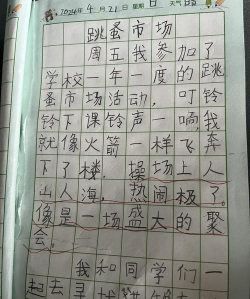 2024年4月21日 星期日 天气晴
跳蚤市场
周五我参加了
学校一年一度的跳
蚤市场活动，叮铃
铃下课铃声一响，我
就像火箭一样飞奔
下了楼，操场上人
山人海，热闹极了。
像是一场盛大的聚
会。
我和同学们一
起去寻找